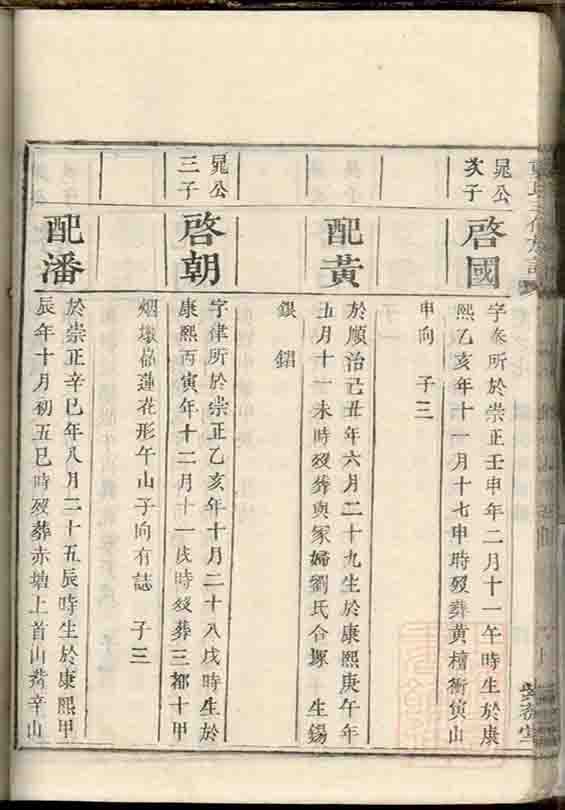 晁公
次子
啓國
字泰所於崇正壬申年二月十一午時生於康
熙乙亥年十一月十七申時歿葬黃檀衝寅山
申向　子三
配黃
於順治己丑年六月二十九生於康熙庚午年
五月十一未時歿葬與冢婦劉氏合塚　生錫
銀　鋁
晁公
三子
啓朝
字律所於崇正乙亥年十月二十八戌時生於
康熙丙寅年十二月十一戌時歿葬三都十甲
烟墩㘭蓮花形午山子向有誌　子三
配潘
於崇正辛巳年八月二十五辰時生於康熙甲
辰年十月初五巳時歿葬赤塘上首山背辛山